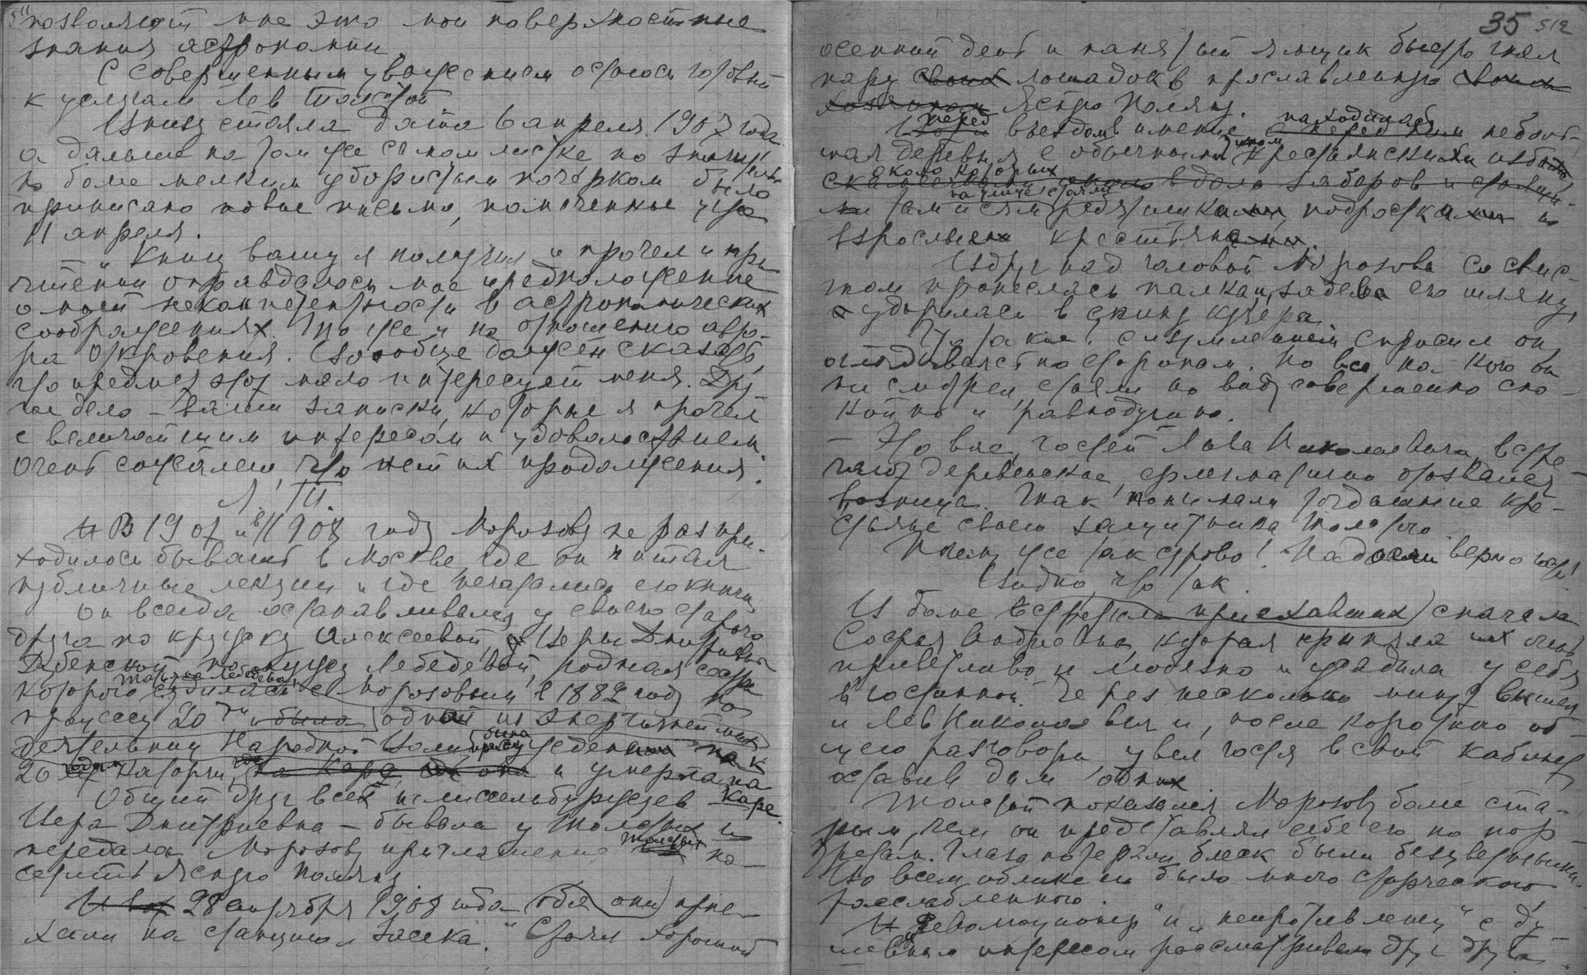 511
позволяют мне это мои поверхностные
знания астрономии.
С совершенным уважением остаюсь готовый
к услугам Лев Толстой
Внизу стояла дата 6 апреля 1907 года
а дальше на том же самом листке но значитель
но более мелким убористым почерком было
приписано новое письмо, помеченное уже
11 апреля.
"Книгу вашу я получил и прочел и при
чтении оправдалось мое предположение
о моей некомпетентности в астрономических
соображениях. То же и по отношению авто-
ра Откровения. Вообще должен сказать,
что предмет этот мало интересует меня. Дру-
гое дело – ваши записки, которые я прочел
с величайшим интересом и удовольствием.
Очень сожалею, что нет их продолжения.
Л. Т.
В 1907 и в 1908 году Морозову не раз при-
ходилось бывать в Москве, где он читал
публичные лекции и где печатались его книги.
Он всегда останавливался у своего старого
друга по кружку Алексеевой, у Веры Дмитриевны
Лебедевой, родная сестра
которого Татьяна Лебедева судилась с Морозовым в 1882 году по
процессу 20ти была одной из энергичнейших
деятельниц Народной Воли была присуждена на
20 годам каторги, и умерла на
Каре.
Общий друг всех шлиссельбуржцев
Вера Дмитриевна – бывала у Толстых и
передала Морозову приглашение Толстых по-
сетить Ясную Поляну
28 сентября 1908 года оба они прие-
хали на станцию "Засека." Стоял хороший
35 512
осенний день и нанятый ямщик быстро гнал
пару своих лошадок в прославленную своим
хозяином Ясную Поляну.
перед въездом в имение находилась неболь-
шая деревня с обычными крестьянскими избами
около которых вдоль заборов и
сами сям ребятишками, подростками и
взрослыми крестьянами.
Вдруг над головой Морозова со свис-
том пронеслась палка и, задев его шляпу,
ударилась в спину кучера.
Что такое с изумлением спросил он,
оглядываясь по сторонам. Но все на кого он
ни смотрел стояли на виду совершенно спо-
койно и равнодушно.
– Это вас, гостей Льва Николаевича, встре-
чают деревенские флегматично отозвался
возница. Так понимали тогдашние кре-
стьяне своего защитника Толстого.
Почему же так сурово! Надоели верно гости
Видно что так.
В доме встретила приехавших сначала
Софья Андреевна, которая приняла их очень
приветливо и любезно и усадила у себя
в гостинной. Через несколько минут вышел
и Лев Николаевич и, после короткого об-
щего разговора увел гостя в свой кабинет
оставив дам одних
Толстой показался Морозову более ста-
рым, чем он представлял себе его по порт-
ретам. Глаза потеряли блеск были бесцветными.
Во всем облике его было много старческого
расслабленного.
"Революционер" и "непротивленец" с ду-
шевным интересом рассматривали друг друга.